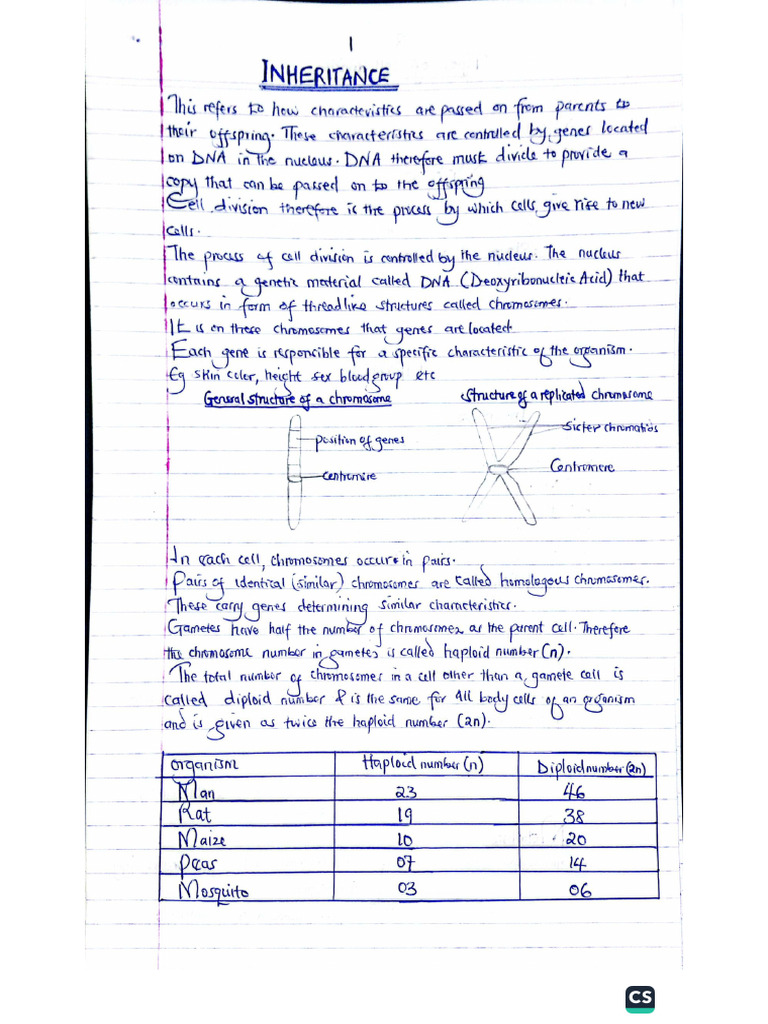 1
INHERITANCE
This refers to how characteristics are passed on from parents to
their offspring. These characteristics are controlled by genes located
on DNA in the nucleus. DNA therefore must divide to provide a
copy that can be passed on to the offspring
Cell division therefore is the process by which cells give rise to new
cells.
The process of cell division is controlled by the nucleus. The nucleus
contains a genetic material called DNA (Deoxyribonucleic Acid) that
occurs in form of threadlike structures called chromosomes.
It is on these chromosomes that genes are located
Each gene is responsible for a specific characteristic of the organism.
Eg skin color, height sex blood group etc
General structure of a chromosome
Structure of a replicated chromosome
position of genes
centromire
Sister chromatids
Centromere
In each cell, chromosomes occurs in pairs.
Pairs of identical (similar) chromosomes are called homologous chromosomes.
These carry genes determining similar characteristics.
Gametes have half the number of chromosomes as the parent cell. Therefore
the chromosome number in gametes is called haploid number (n).
The total number of chromosomes in a cell other than a gamete cell is
called diploid number & is the same for all body cells of an organism
and is given as twice the haploid number (2n).
organism Haploid number (n) Diploid number (2n)
Man 23 46
Rat 19 38
Maize 10 20
Peas 07 14
Mosquito 03 06
CS